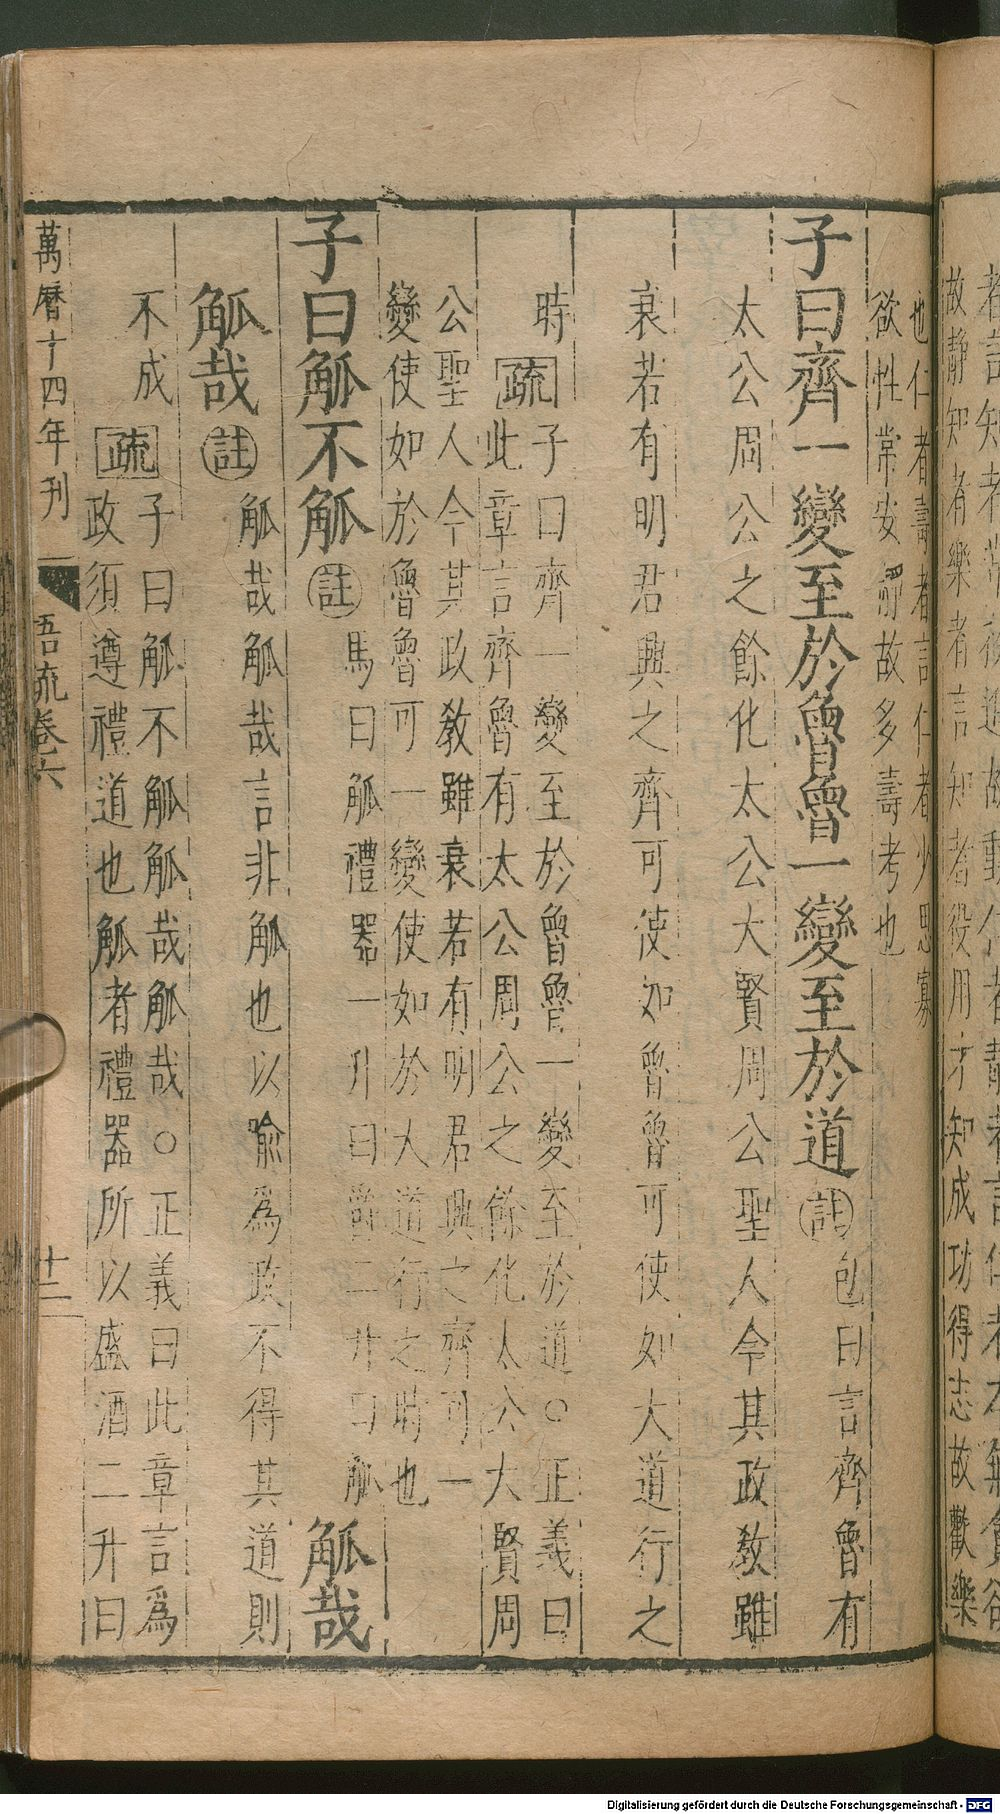 故靜知者樂者言知者役用才知成功得志故歡樂
也仁者壽者言仁者少思寡
欲性常安靜故多壽考也
子曰齊一變至於魯魯一變至於道註包曰言齊魯有
太公周公之餘化太公大賢周公聖人今其政教雖
衰若有明君興之齊可使如魯魯可使如大道行之
時疏子曰齊一變至於魯魯一變至於道○正義曰
此章言齊魯有太公周公之餘化太公大賢周
公聖人今其政教雖衰若有明君興之齊可一
變使如於魯魯可一變使如於大道行之時也
子曰觚不觚註馬曰觚禮器一升曰爵二升曰觚觚哉
觚哉註觚哉觚哉言非觚也以喻為政不得其道則
不成疏子曰觚不觚觚哉觚哉○正義曰此章言爲
政須遵禮道也觚者禮器所以盛酒二升曰
萬曆十四年刊
吾流卷六
十二
Digitalisierung gefördert durch die Deutsche Forschungsgemeinschaft - DFG